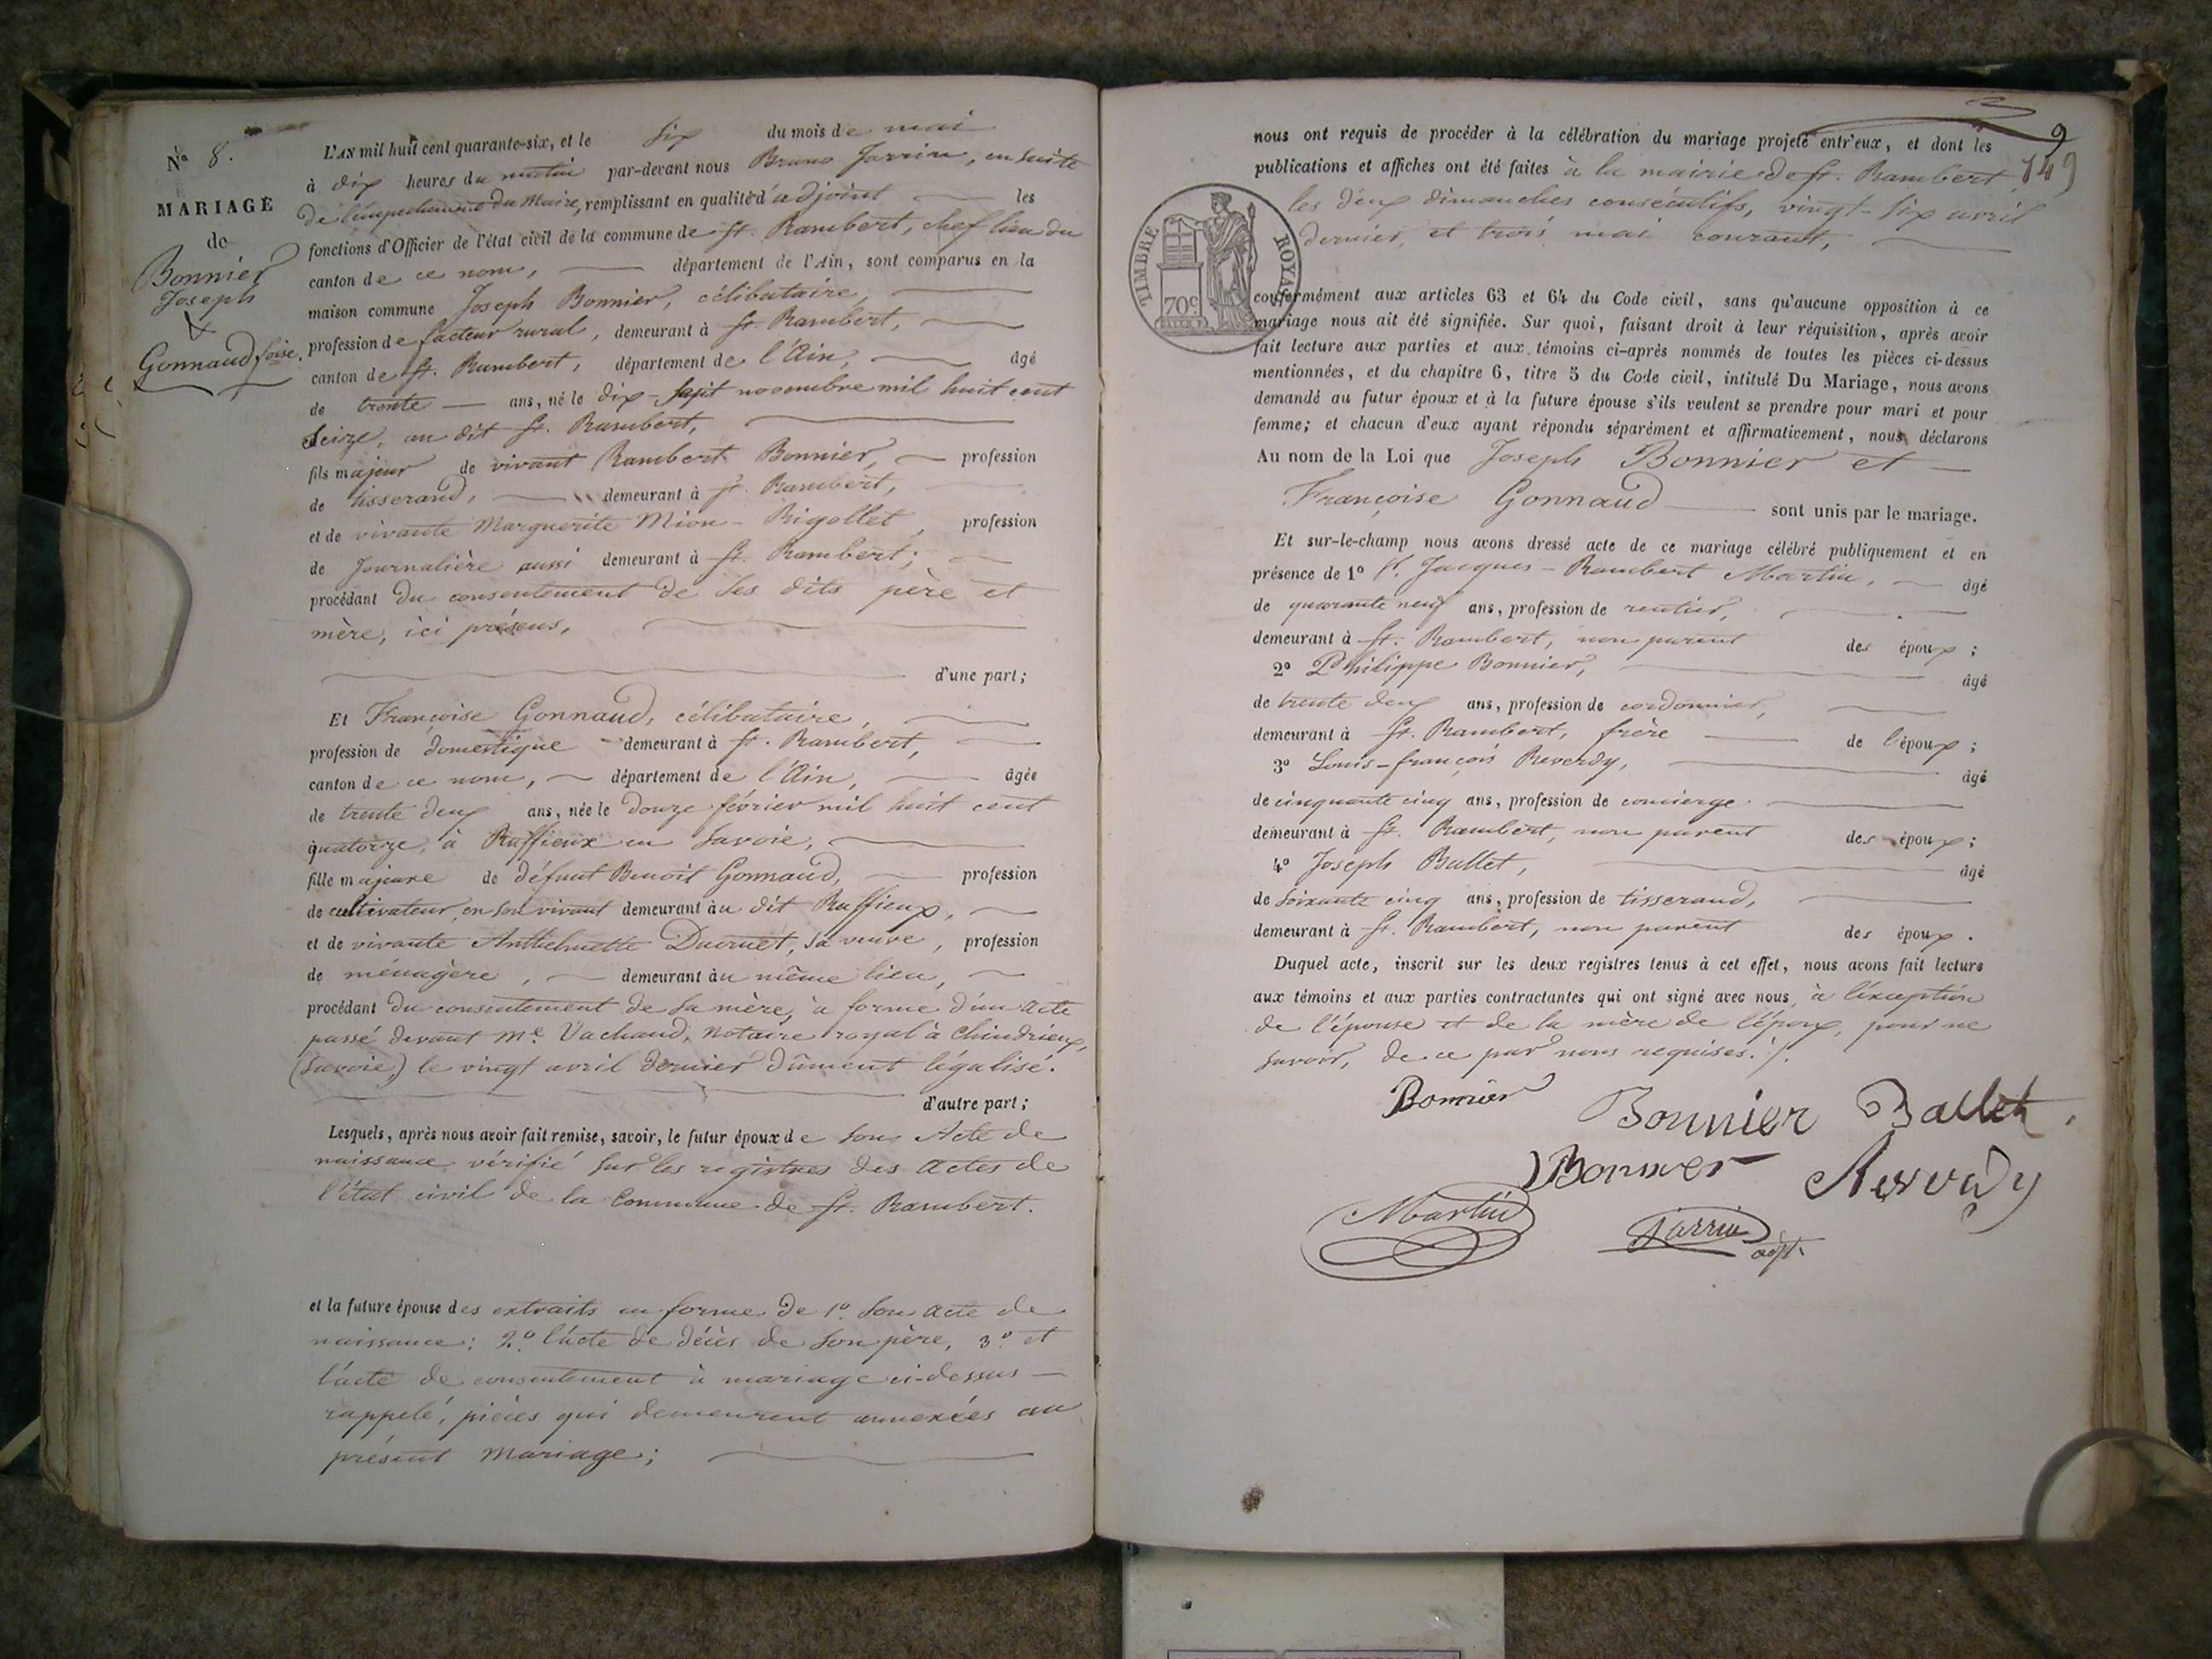 Nº 8.
MARIAGE
de
Bonnier
Joseph
&
Gonnaud foise.
L'AN mil huit cent quarante-six, et le six du mois de mai
à dix heures du matin par-devant nous Bruno Jarrin, en suite
de l'empechement du Maire, remplissant en qualité d'adjoint les
fonctions d'Officier de l'état civil de la commune de St. Rambert, chef lieu du
canton de ce nom, département de l'Ain, sont comparus en la
maison commune Joseph Bonnier, célibataire,
profession de facteur rural, demeurant à St. Rambert,
canton de St. Rambert, département de l'Ain, âgé
de trente ans, né le dix-sept novembre mil huit cent
seize, au dit St. Rambert,
fils majeur de vivant Rambert Bonnier, profession
de tisserand, demeurant à St. Rambert,
et de vivante Marguerite Mion-Rigollet, profession
de Journalière aussi demeurant à St. Rambert;
procédant du consentement de ses dits père et
mère, ici présens,
d'une part;
Et Françoise Gonnaud, célibataire,
profession de domestique demeurant à St. Rambert,
canton de ce nom, département de l'Ain, âgée
de trente deux ans, née le douze février mil huit cent
quatorze, à Ruffieux en Savoie,
fille majeure de défunt Benoit Gonnaud, profession
de cultivateur, en son vivant demeurant au dit Ruffieux,
et de vivante Anthelmette Ducruet, sa veuve, profession
de ménagère, demeurant au même lieu,
procédant du consentement de sa mère, à forme d'un acte
passé devant Me. Vachaud, notaire royal à Chindrieux,
(Savoie,) le vingt avril dernier dûment légalisé.
d'autre part;
Lesquels, après nous avoir fait remise, savoir, le futur époux de son Acte de
naissance vérifié sur les registres des actes de
l'état civil de la Commune de St. Rambert.
et la future épouse des extraits en forme de 1º. son acte de
naissance; 2º. l'acte de décès de son père, 3º. et
l'acte de consentement à mariage ci-dessus
rappelé, pièces qui demeurent annexées au
présent mariage;
9
149
nous ont requis de procéder à la célébration du mariage projeté entr'eux, et dont les
publications et affiches ont été faites à la mairie de St. Rambert
les deux dimanches consécutifs, vingt-six avril
dernier, et trois mai courant,
TIMBRE ROYAL
70c
conformément aux articles 63 et 64 du Code civil, sans qu'aucune opposition à ce
mariage nous ait été signifiée. Sur quoi, faisant droit à leur réquisition, après avoir
fait lecture aux parties et aux témoins ci-après nommés de toutes les pièces ci-dessus
mentionnées, et du chapitre 6, titre 5 du Code civil, intitulé Du Mariage, nous avons
demandé au futur époux et à la future épouse s'ils veulent se prendre pour mari et pour
femme; et chacun d'eux ayant répondu séparément et affirmativement, nous déclarons
Au nom de la Loi que Joseph Bonnier et
Françoise Gonnaud sont unis par le mariage.
Et sur-le-champ nous avons dressé acte de ce mariage célébré publiquement et en
présence de 1º St. Jacques-Rambert Martin, âgé
de quarante neuf ans, profession de rentier,
demeurant à St. Rambert, non parent des époux;
2º Philippe Bonnier, âgé
de trente deux ans, profession de cordonnier,
demeurant à St. Rambert, frère de l'époux;
3º Louis-françois Reverdy, âgé
de cinquante cinq ans, profession de concierge
demeurant à St. Rambert, non parent des époux;
4º Joseph Ballet, âgé
de soixante cinq ans, profession de tisserand,
demeurant à St. Rambert, non parent des époux.
Duquel acte, inscrit sur les deux registres tenus à cet effet, nous avons fait lecture
aux témoins et aux parties contractantes qui ont signé avec nous, à l'exception
de l'épouse et de la mère de l'époux, pour ne
savoir, de ce par nous requises./.
Bonnier Bonnier Ballet
Bonnier Reverdy
Martin Jarrin adjt.